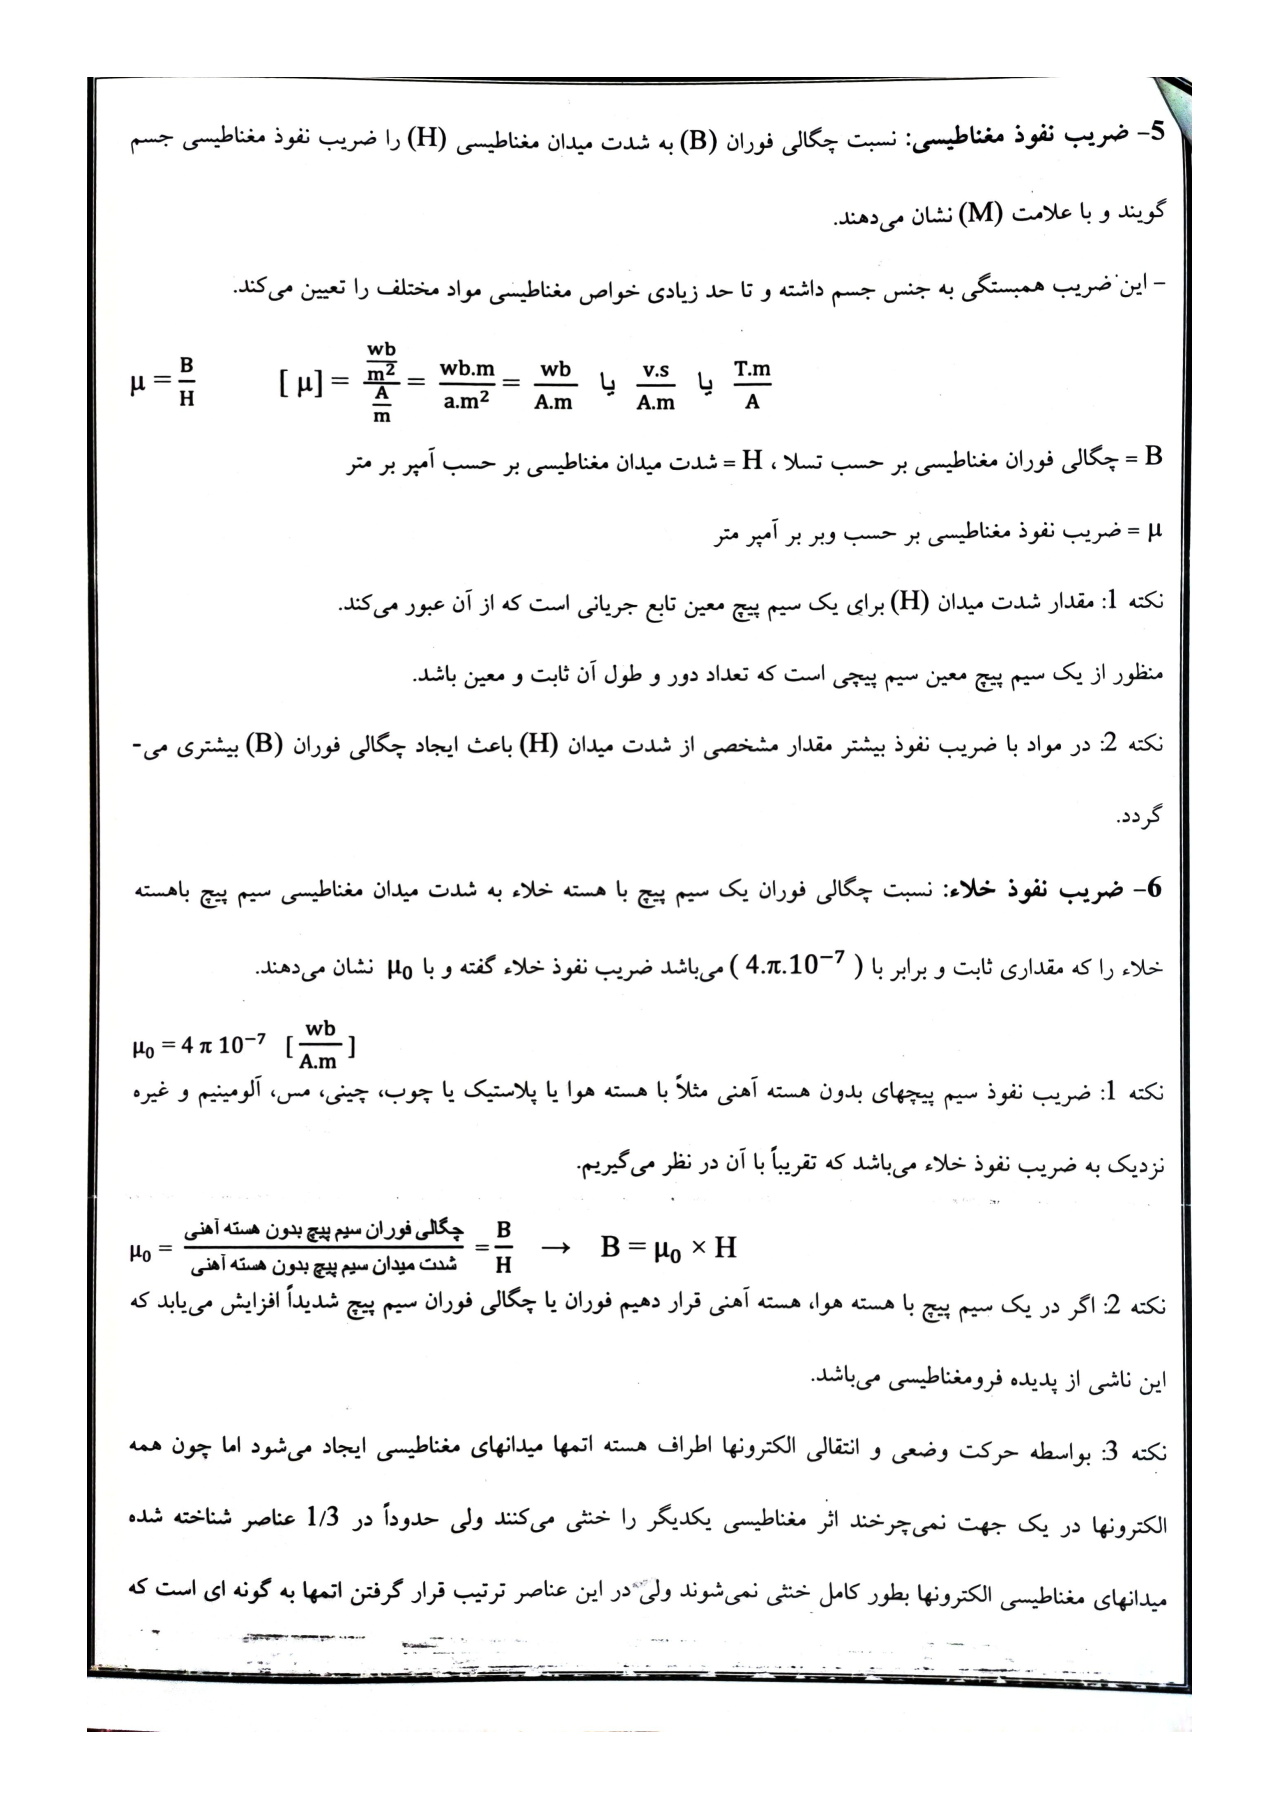 5- ضریب نفوذ مغناطیسی: نسبت چگالی فوران (B) به شدت میدان مغناطیسی (H) را ضریب نفوذ مغناطیسی جسم
گویند و با علامت (M) نشان می‌دهند.
- این ضریب همبستگی به جنس جسم داشته و تا حد زیادی خواص مغناطیسی مواد مختلف را تعیین می‌کند.
μ = B/H [ μ] = (wb/m²)/(A/m) = wb.m/a.m² = wb/A.m یا v.s/A.m یا T.m/A
B = چگالی فوران مغناطیسی بر حسب تسلا ، H = شدت میدان مغناطیسی بر حسب آمپر بر متر
μ = ضریب نفوذ مغناطیسی بر حسب وبر بر آمپر متر
نکته 1: مقدار شدت میدان (H) برای یک سیم پیچ معین تابع جریانی است که از آن عبور می‌کند.
منظور از یک سیم پیچ معین سیم پیچی است که تعداد دور و طول آن ثابت و معین باشد.
نکته 2: در مواد با ضریب نفوذ بیشتر مقدار مشخصی از شدت میدان (H) باعث ایجاد چگالی فوران (B) بیشتری می-
گردد.
6- ضریب نفوذ خلاء: نسبت چگالی فوران یک سیم پیچ با هسته خلاء به شدت میدان مغناطیسی سیم پیچ باهسته
خلاء را که مقداری ثابت و برابر با ( 4.π.10⁻⁷ ) می‌باشد ضریب نفوذ خلاء گفته و با μ₀ نشان می‌دهند.
μ₀ = 4 π 10⁻⁷ [ wb/A.m ]
نکته 1: ضریب نفوذ سیم پیچهای بدون هسته آهنی مثلاً با هسته هوا یا پلاستیک یا چوب، چینی، مس، آلومینیم و غیره
نزدیک به ضریب نفوذ خلاء می‌باشد که تقریباً با آن در نظر می‌گیریم.
μ₀ = چگالی فوران سیم پیچ بدون هسته آهنی / شدت میدان سیم پیچ بدون هسته آهنی = B/H → B = μ₀ × H
نکته 2: اگر در یک سیم پیچ با هسته هوا، هسته آهنی قرار دهیم فوران یا چگالی فوران سیم پیچ شدیداً افزایش می‌یابد که
این ناشی از پدیده فرومغناطیسی می‌باشد.
نکته 3: بواسطه حرکت وضعی و انتقالی الکترونها اطراف هسته اتمها میدانهای مغناطیسی ایجاد می‌شود اما چون همه
الکترونها در یک جهت نمی‌چرخند اثر مغناطیسی یکدیگر را خنثی می‌کنند ولی حدوداً در 1/3 عناصر شناخته شده
میدانهای مغناطیسی الکترونها بطور کامل خنثی نمی‌شوند ولی در این عناصر ترتیب قرار گرفتن اتمها به گونه ای است که